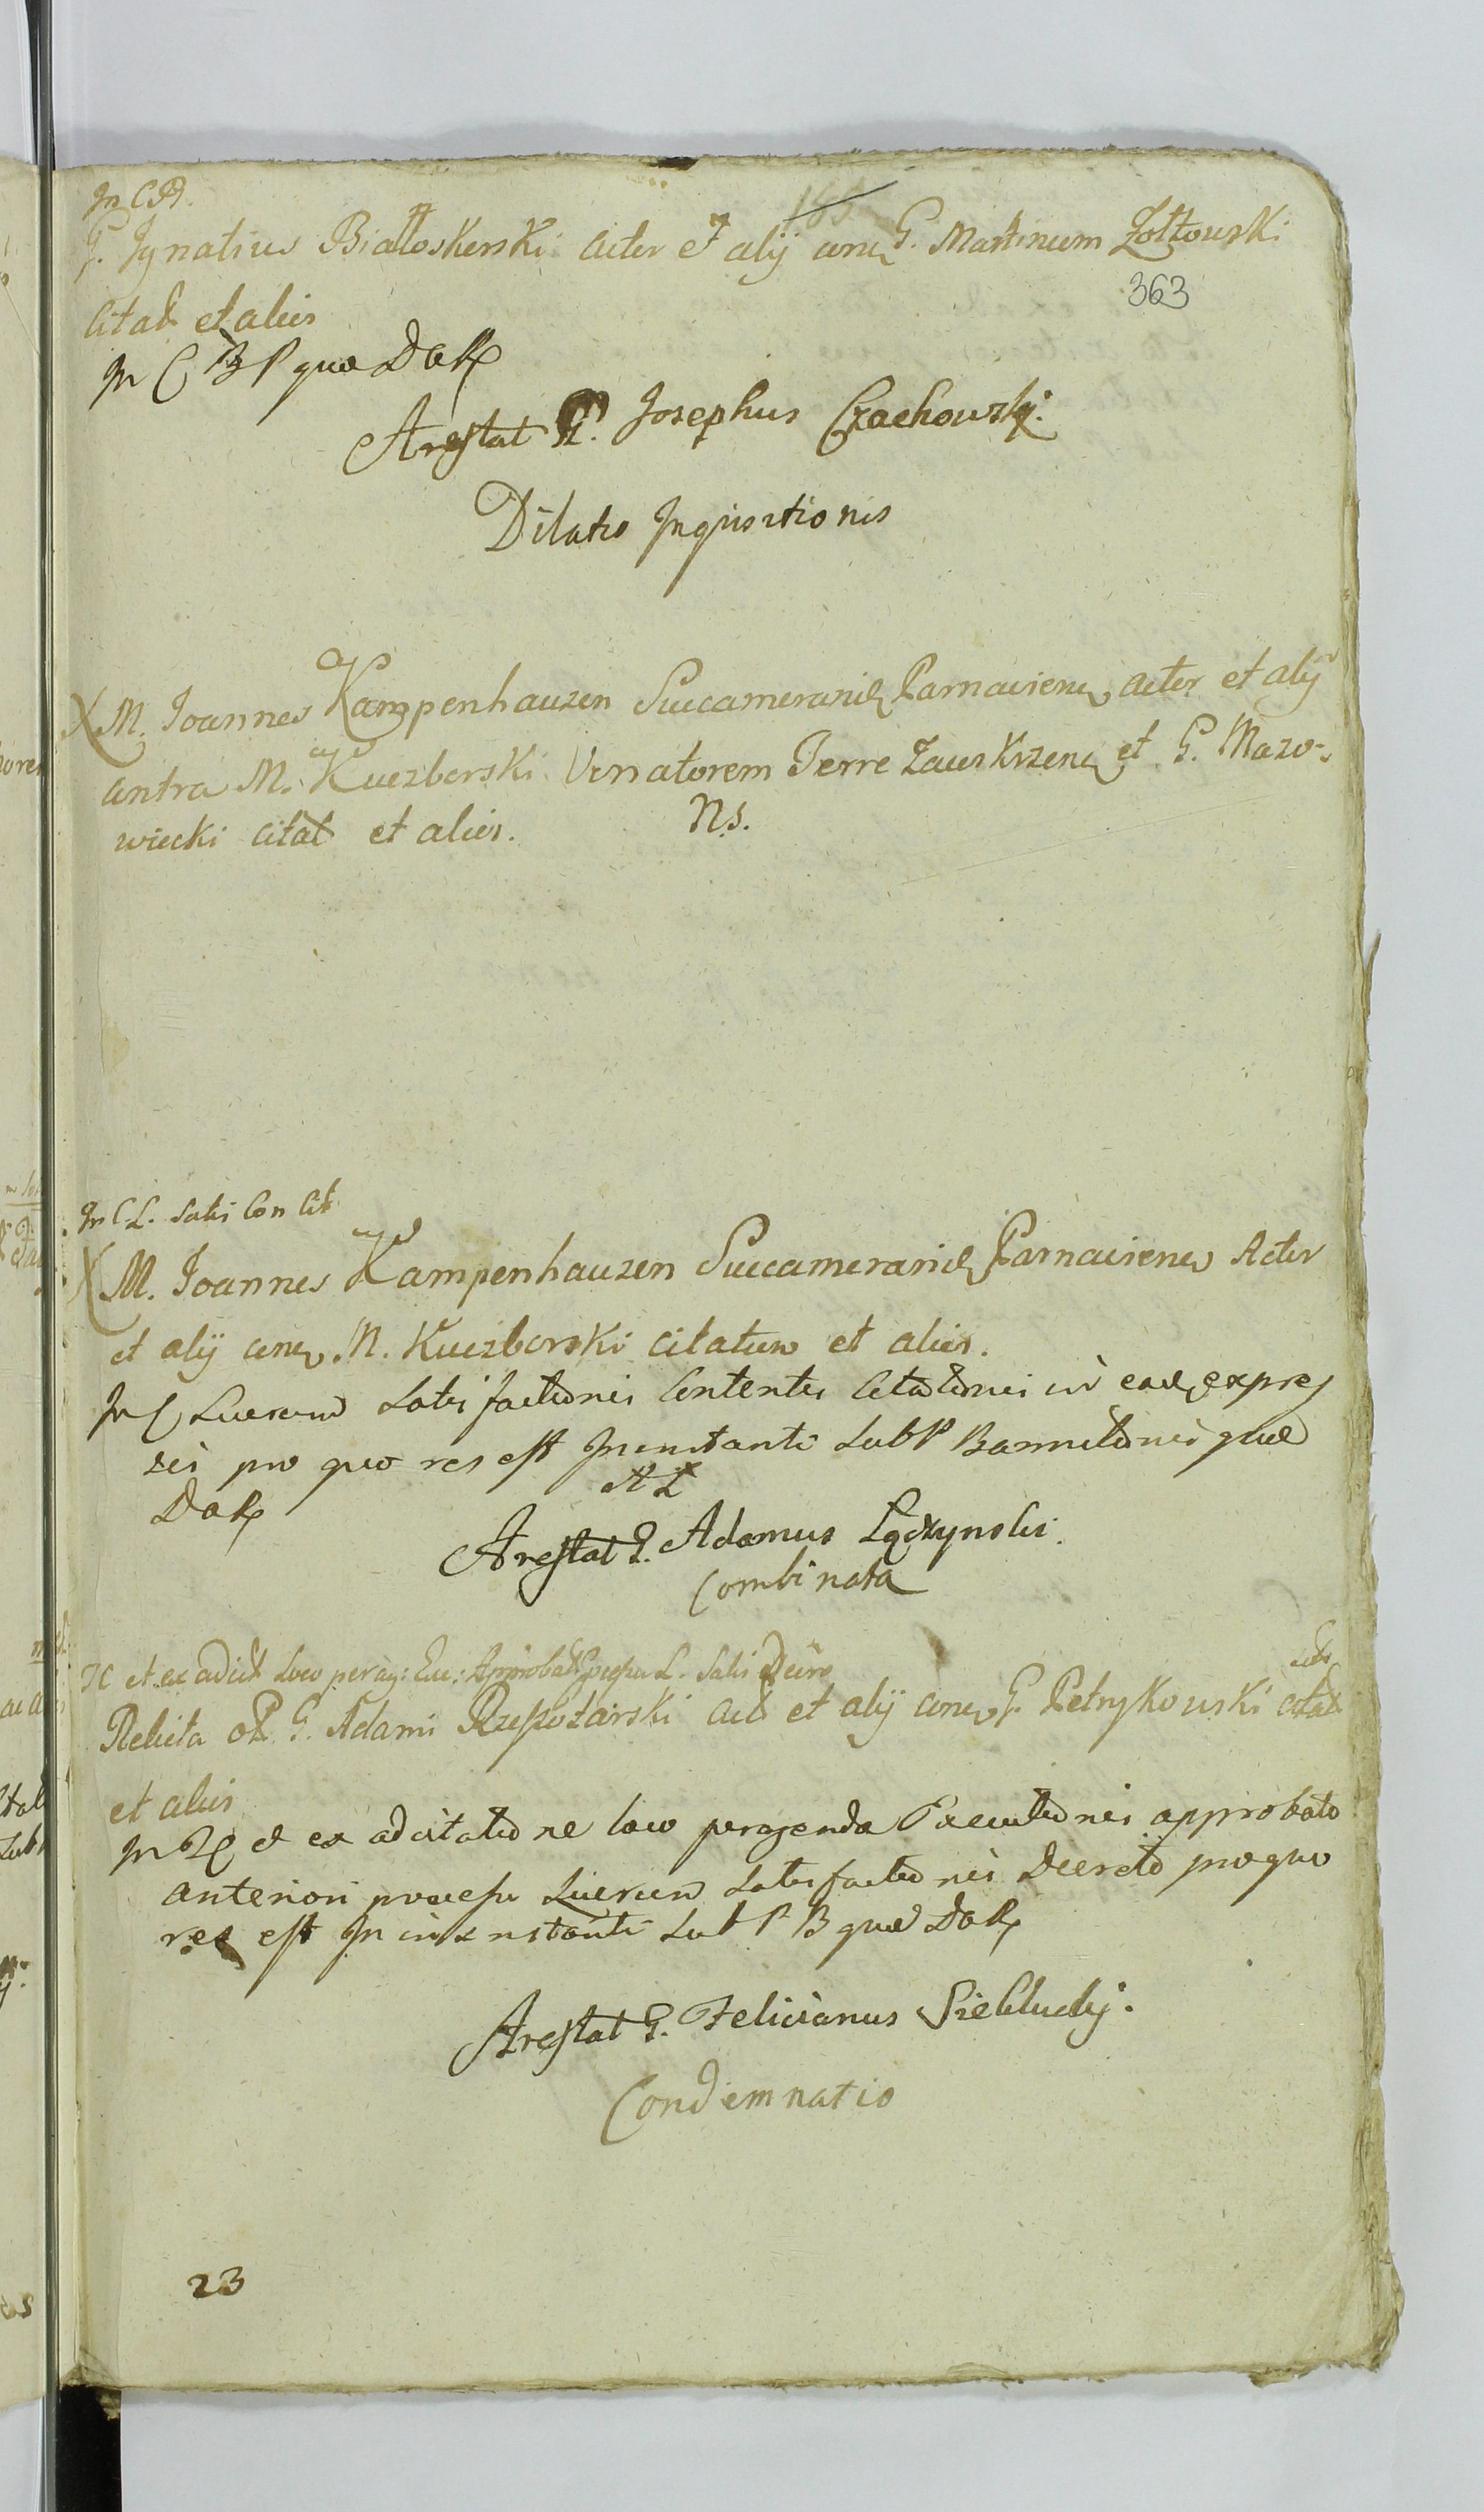 In C B.
G. Ignatius Białłoskurski Acter et alÿ conq G. Martinum Zołtowski
363
Citat et alios
In C B P quæ Dak
Arestat G. Josephus Czachowsky.
Dilatio Inquisitionis
M. Joannes Kampenhauzen Succameranig Parnaviens Acter et alÿ
contra M. Kuczborski Venatorem Terre Zawskrzens et G. Mazo-
wiecki Citat et alios.
N.S.
In C L. Satis Con Cit
M. Joannes Kampenhauzen Succameranig Parnaviens Acter
et alÿ conq M. Kuczborski citatum et alios.
In C Lucrum Satisfactionis Contentis Citationis in eadq expres
sis pro quo res est In instanti sub P Bannitionis quæ
Dak
Arestat G. Adamus Łączynski.
Combinata
et ex adcit loco perag: Exe: Approbat L. Satis Decre
Relicta G. Adami Rzeszotarski Act et alÿ conq G. Petrykowski citat
et alios
In et ex adcitatione loco peragenda Executionis approbato
anteriori processu Lucrum Satisfactionis Decreto pro quo
res est In instanti sub P B quæ Dak
Arestat G. Felicianus Siekludy.
Condemnatio
23